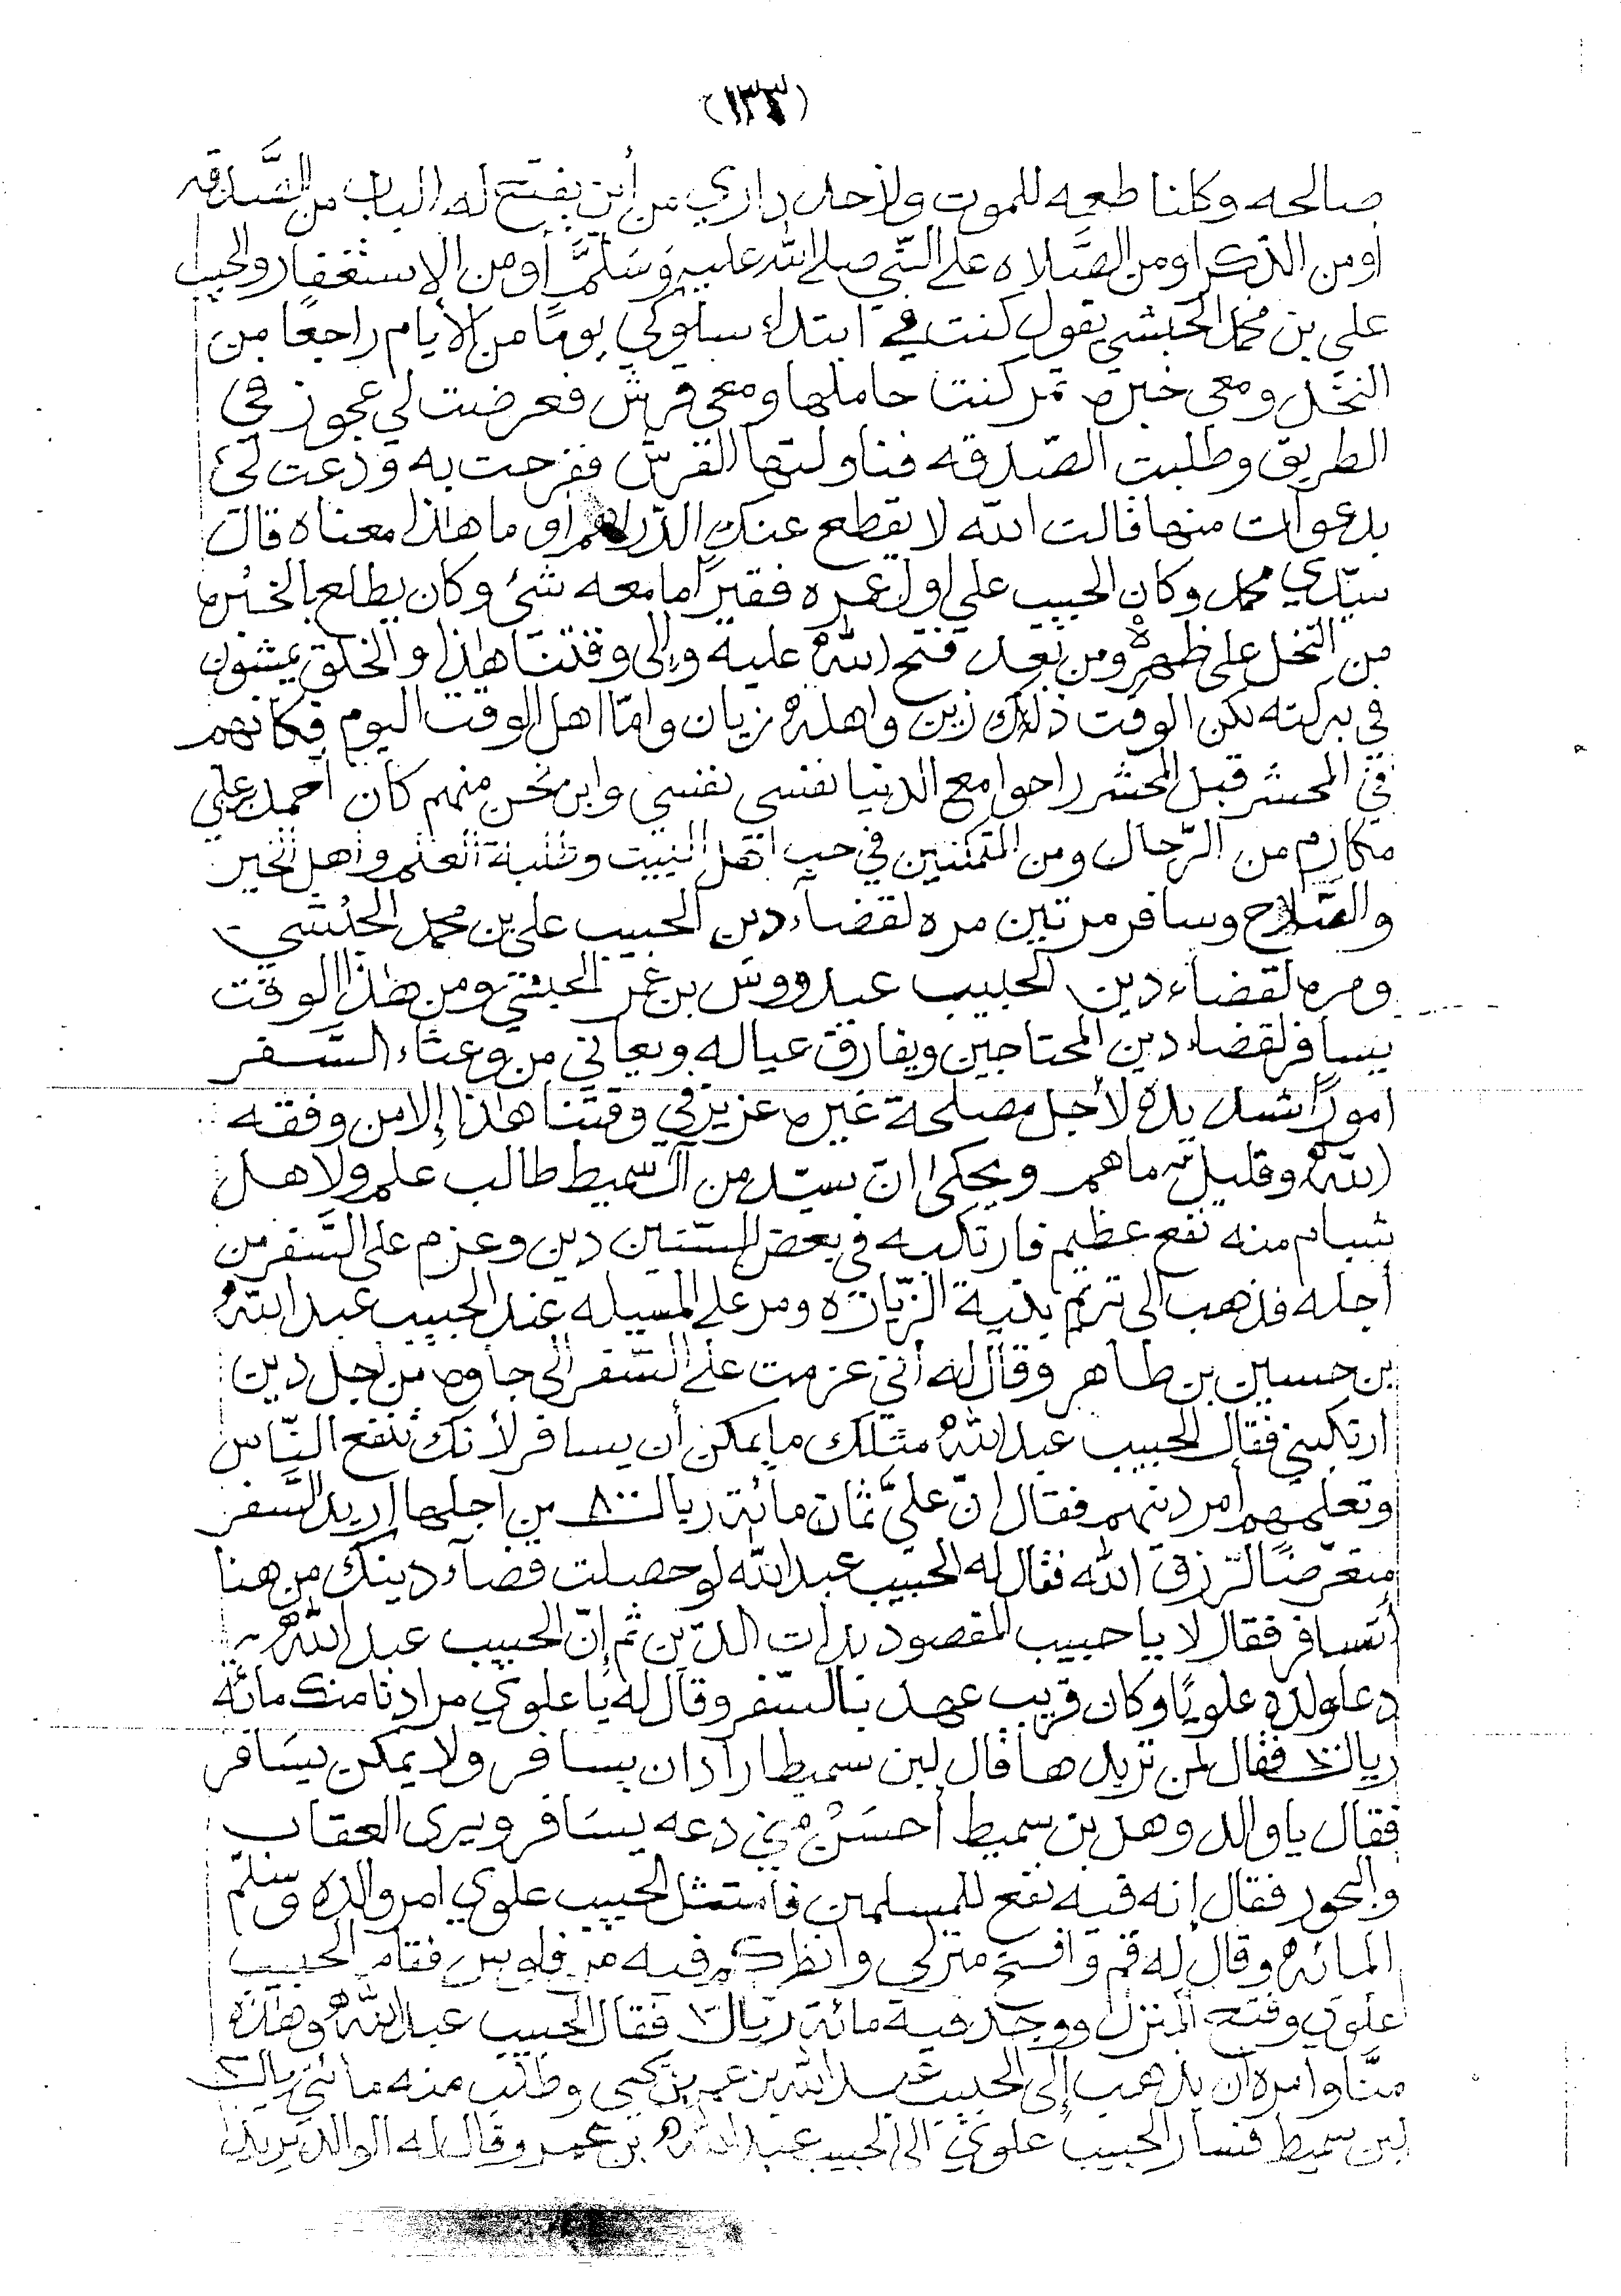 (١٣٣)
صالحه وكلنا طعمه للموت ولاحد داري من أين يفتح له الباب من الصَّدقه
او من الذكر او من الصَّلاه على النّبي صلى الله عليه وَسَلَّمَ أو من الإستغفار والحبيب
علي بن محمد الحبشي يقول كنت في ابتداء سلوكي يومًا من الأيام راجعًا من
النخل ومعي خبره تمر كنت حاملها ومعي قرش فعرضت لي عجوز في
الطريق وطلبت الصّدقه فناولتها القرش ففرحت به ودعت لي
بدعوات منها قالت الله لا يقطع عنك الدّراهم أو ما هاذا معناه قال
سيّدي محمد وكان الحبيب علي اول عمره فقيرًا مامعه شئ وكان يطلع بالخبره
من النخل على ظهره ومن بعد فتح اللهُ عليه وإلى وقتنا هاذا والخلق يمشون
في بركته لكن الوقت ذلك زين واهله زيان وامّا اهل الوقت اليوم فكانهم
في المحشر قبل المحشر راحوا مع الدنيا نفسي نفسي واين نحن منهم كان احمد بن علي
مكارم من الرّجال ومن المتمكنين في حب اهل البيت وطلبة العلم واهل الخير
والصَّلاح وسافر مرتين مره لقضاء دين الحبيب علي بن محمد الحبشي
ومره لقضاء دين الحبيب عيدروس بن عمر الحبشي ومن هذا الوقت
يسافر لقضاء دين المحتاجين ويفارق عياله ويعاني من وعثاء السَّفر
امورًا شديده لأجل مصلحة غيره عزيز في وقتنا هاذا إلا من وفقه
اللهُ وقليل ما هم ويحكى ان سيّد من آل سميط طالب علم ولاهل
شبام منه نفع عظيم فارتكبه في بعض السّنين دين وعزم على السَّفر من
أجله فذهب الى تريم بنية الزّياره ومر على المسيله عند الحبيب عبد اللهُ
بن حسين بن طاهر وقال له أني عزمت على السّفر إلى جاوه من اجل دين
ارتكبني فقال الحبيب عبد اللهُ مثلك ما يمكن أن يسافر لأنك تنفع النّاس
وتعلمهم أمر دينهم فقال انّ عليَّ ثمان مائة ريال ٨٠٠ من اجلها اريد السَّفر
متعرّضًا لرزق الله فقال له الحبيب عبد الله لو حصلت قضاء دينك من هنا
أتسافر فقال لا يا حبيب المقصود بذات الدّين ثم إنّ الحبيب عبد اللهُ
دعا ولده علويًا وكان قريب عهد بالسّفر وقال له يا علوي مرادنا منك مائة
ريال ١٠٠ فقال لمن تريدها قال لبن سميط اراد ان يسافر ولا يمكن يسَافر
فقال يا والد وهل بن سميط أحسَنْ مني دعه يسَافر ويرى العقاب
والبحور فقال إنه فيه نفع للمسلمين فأمتثل الحبيب علوي امر والده وسلّم
المائه وقال له قم وافتح منزلي وانظر كم فيه من فلوس فقام الحبيب
علوي وفتح المنزل ووجد فيه مائة ريال ١٠٠ فقال الحبيب عبد اللهُ وهاذه
منّا وامره أن يذهب إلى الحبيب عبد الله بن عمر بن يحيى وطلب منه مائتي ريال ٢٠٠
لبن سميط فسار الحبيب علوي الى الحبيب عبد اللهُ بن عمر وقال له الوالد يريد